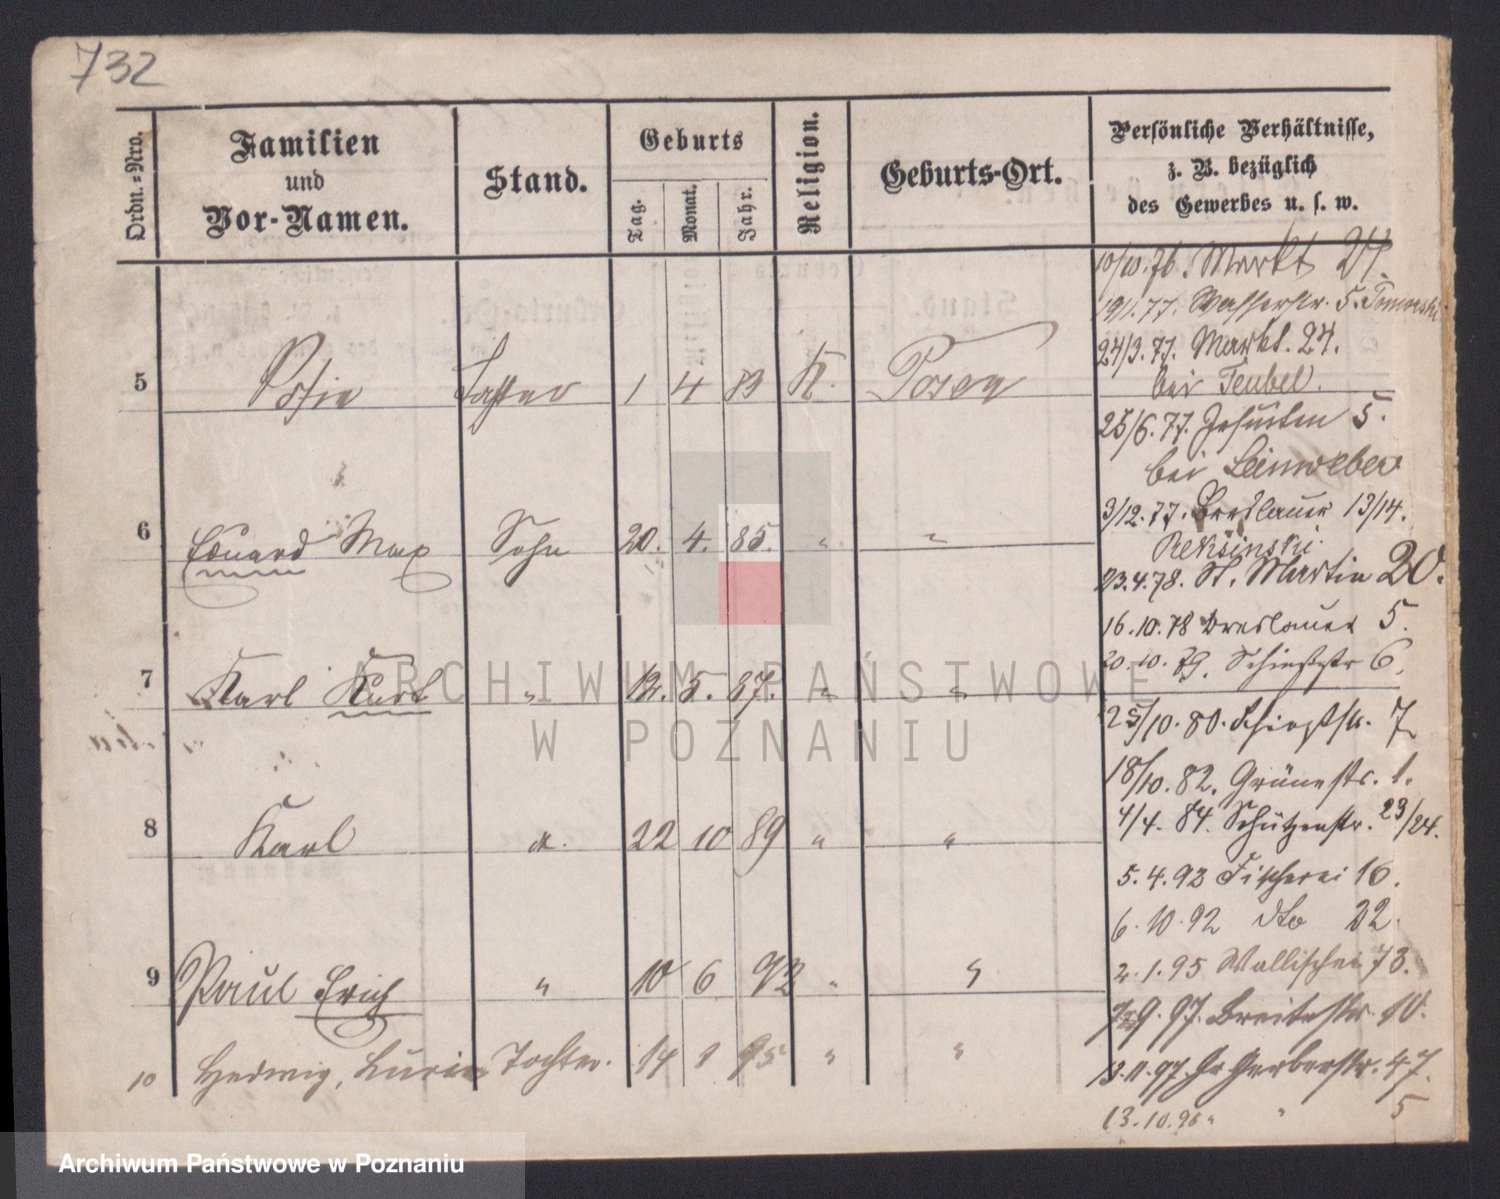 732
Ordn.-Nro.
Familien
und
Vor-Namen.
Stand.
Geburts
Tag.
Monat.
Jahr.
Religion.
Geburts-Ort.
Persönliche Verhältnisse,
z. B. bezüglich
des Gewerbes u. s. w.
10/10. 76. Markt 27.
19/1. 77. Wasserstr. 5.
24/3. 77. Markt. 24.
bei Teubel.
5 1 4 83 K. Posen
25/6. 77. Jesuiten 5.
bei Leinweber
3/12. 77. Breslauer 13/14.
6 Eduard Max Sohn 20. 4. 85. " "
Reksinski
23. 4. 78. St. Martin 20.
16. 10. 78 Breslauer 5.
20. 10. 79. Schießstr 6.
7 Karl Kurt " 12. 5. 87. " "
25/10. 80. Schießstr. 7
18/10. 82. Grünestr. 1.
4/4. 84. Schützenstr. 23/24.
8 Karl 22 10 89 " "
5. 4. 92 Fischerei 16.
6. 10. 92 dto 22.
2. 1. 95 Wallischei 73.
9 Paul Erich " 10 6 92 " "
9. 97. Breitestr. 10.
10 Hedwig, Tochter. 14 1 95 " "
13. 11. 97. Gr Gerberstr. 47.
13. 10. 98 " " 5
ARCHIWUM PAŃSTWOWE
W POZNANIU
Archiwum Państwowe w Poznaniu